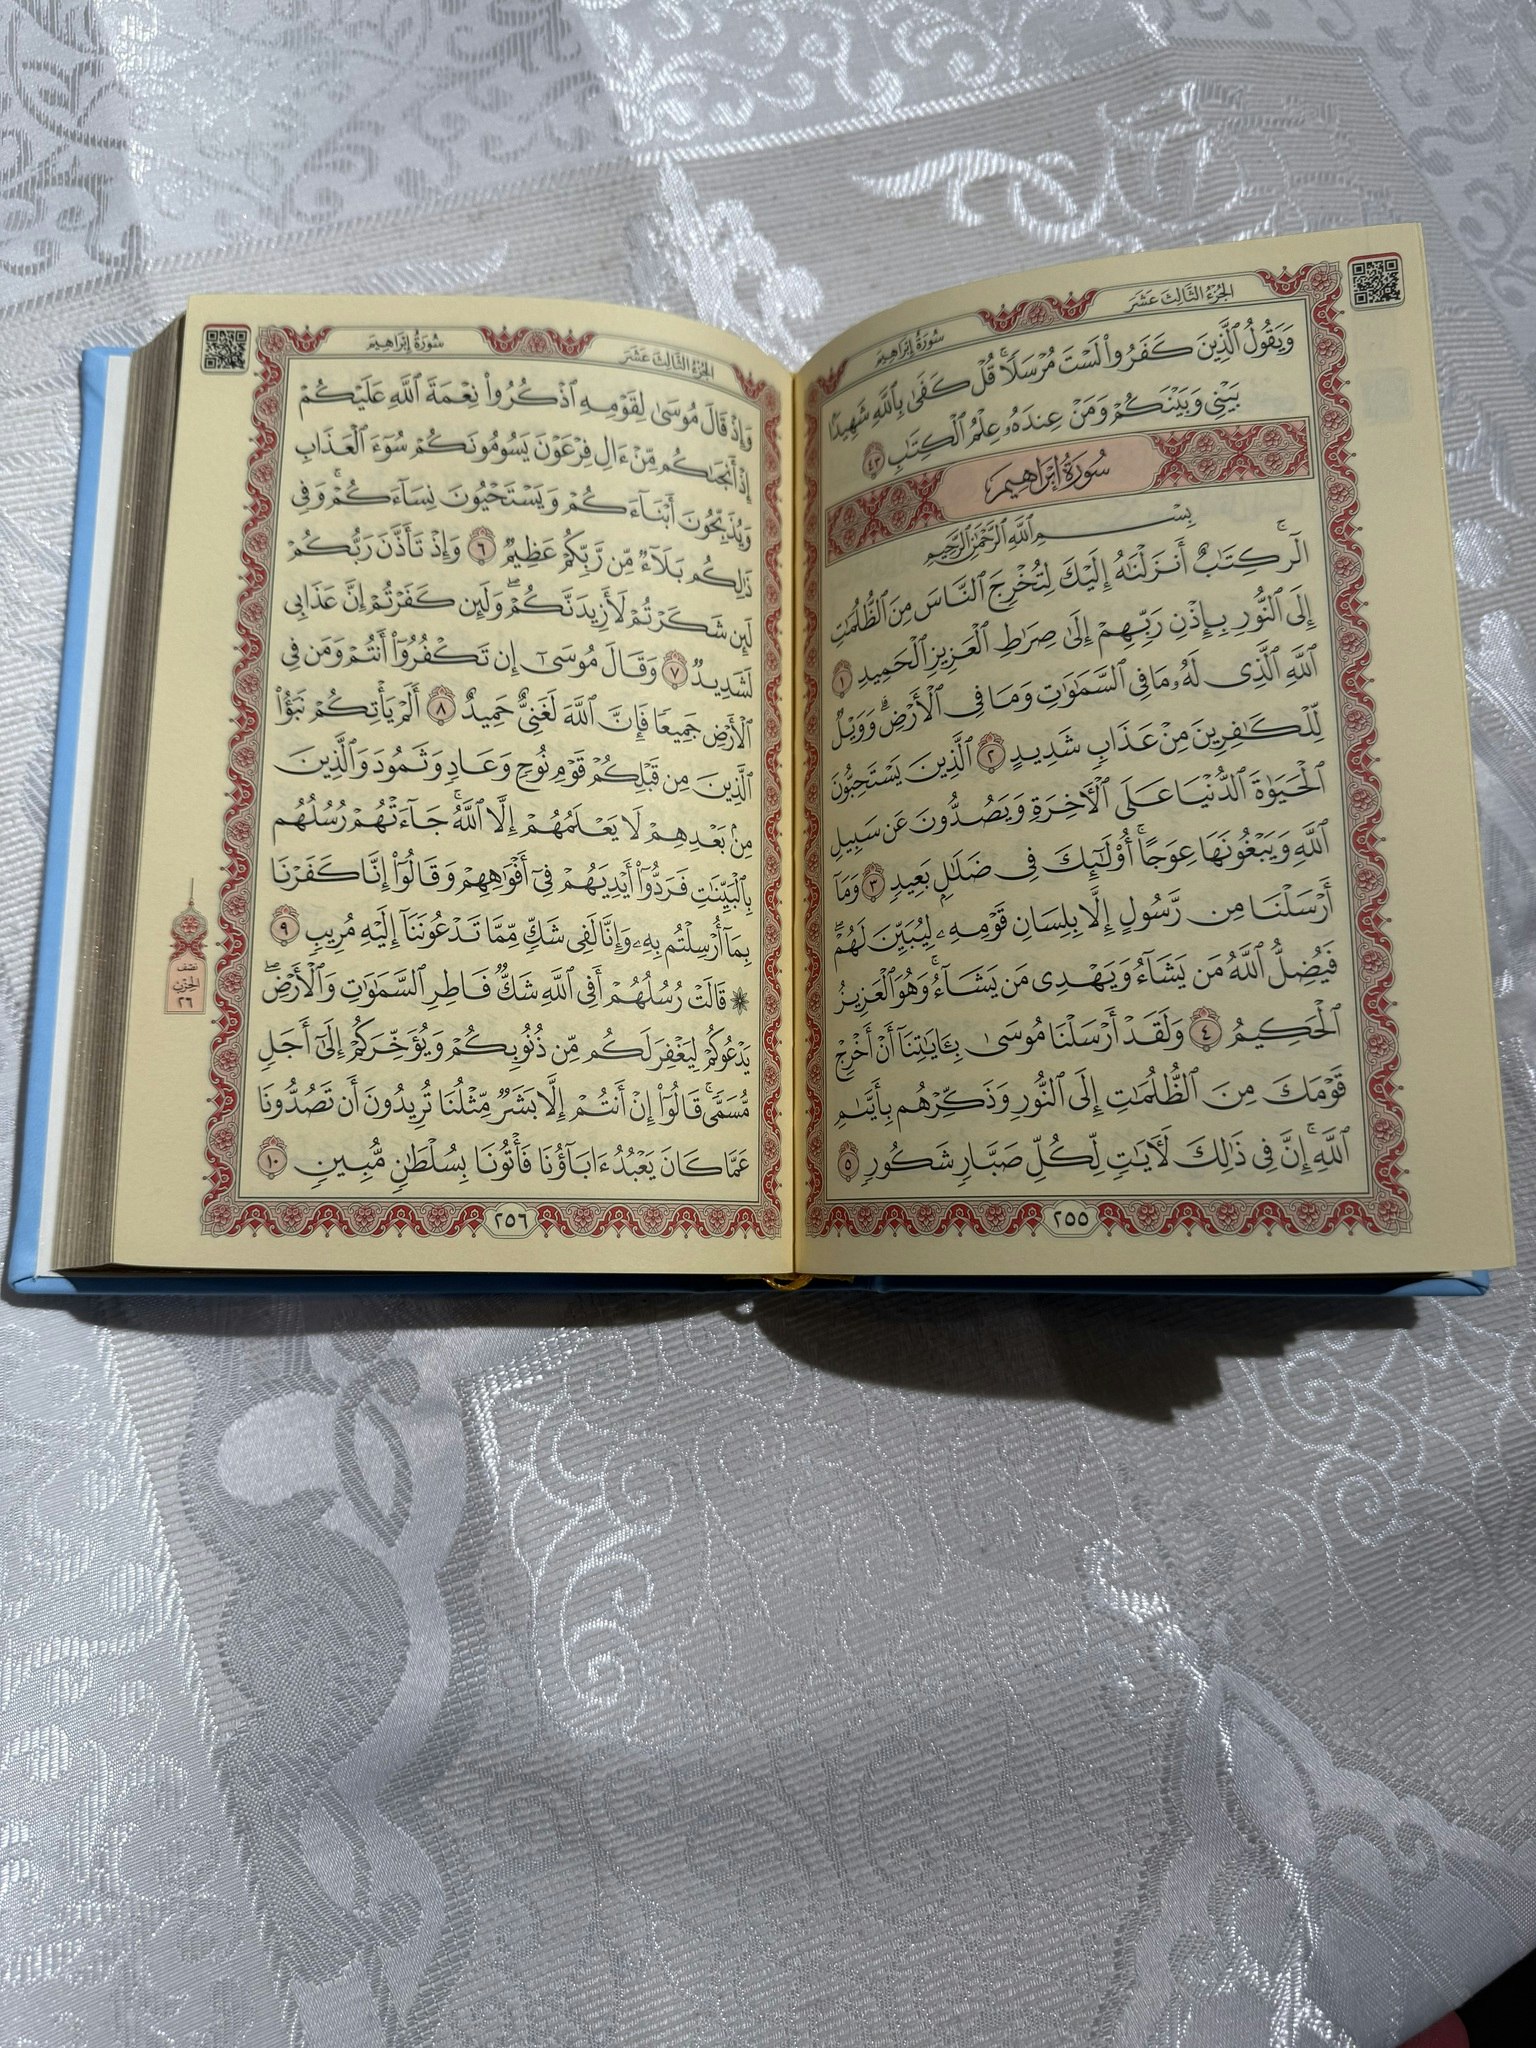 الجُزْءُ الثَّالِثَ عَشَرَ
سُورَةُ إِبْرَاهِيمَ
وَيَقُولُ ٱلَّذِينَ كَفَرُوا۟ لَسْتَ مُرْسَلًاۚ قُلْ كَفَىٰ بِٱللَّهِ شَهِيدًۢا
بَيْنِى وَبَيْنَكُمْ وَمَنْ عِندَهُۥ عِلْمُ ٱلْكِتَٰبِ ٤٣
سُورَةُ إِبْرَاهِيمَ
بِسْمِ ٱللَّهِ ٱلرَّحْمَٰنِ ٱلرَّحِيمِ
الٓرۚ كِتَٰبٌ أَنزَلْنَٰهُ إِلَيْكَ لِتُخْرِجَ ٱلنَّاسَ مِنَ ٱلظُّلُمَٰتِ
إِلَى ٱلنُّورِ بِإِذْنِ رَبِّهِمْ إِلَىٰ صِرَٰطِ ٱلْعَزِيزِ ٱلْحَمِيدِ ١
ٱللَّهِ ٱلَّذِى لَهُۥ مَا فِى ٱلسَّمَٰوَٰتِ وَمَا فِى ٱلْأَرْضِۗ وَوَيْلٌ
لِّلْكَٰفِرِينَ مِنْ عَذَابٍ شَدِيدٍ ٢ ٱلَّذِينَ يَسْتَحِبُّونَ
ٱلْحَيَوٰةَ ٱلدُّنْيَا عَلَى ٱلْأَخِرَةِ وَيَصُدُّونَ عَن سَبِيلِ
ٱللَّهِ وَيَبْغُونَهَا عِوَجًاۚ أُو۟لَٰٓئِكَ فِى ضَلَٰلٍۭ بَعِيدٍ ٣ وَمَآ
أَرْسَلْنَا مِن رَّسُولٍ إِلَّا بِلِسَانِ قَوْمِهِۦ لِيُبَيِّنَ لَهُمْۖ
فَيُضِلُّ ٱللَّهُ مَن يَشَآءُ وَيَهْدِى مَن يَشَآءُۚ وَهُوَ ٱلْعَزِيزُ
ٱلْحَكِيمُ ٤ وَلَقَدْ أَرْسَلْنَا مُوسَىٰ بِـَٔايَٰتِنَآ أَنْ أَخْرِجْ
قَوْمَكَ مِنَ ٱلظُّلُمَٰتِ إِلَى ٱلنُّورِ وَذَكِّرْهُم بِأَيَّىٰمِ
ٱللَّهِۚ إِنَّ فِى ذَٰلِكَ لَأَيَٰتٍ لِّكُلِّ صَبَّارٍ شَكُورٍ ٥
٢٥٥
الجُزْءُ الثَّالِثَ عَشَرَ
سُورَةُ إِبْرَاهِيمَ
وَإِذْ قَالَ مُوسَىٰ لِقَوْمِهِ ٱذْكُرُوا۟ نِعْمَةَ ٱللَّهِ عَلَيْكُمْ
إِذْ أَنجَىٰكُم مِّنْ ءَالِ فِرْعَوْنَ يَسُومُونَكُمْ سُوٓءَ ٱلْعَذَابِ
وَيُذَبِّحُونَ أَبْنَآءَكُمْ وَيَسْتَحْيُونَ نِسَآءَكُمْۚ وَفِى
ذَٰلِكُم بَلَآءٌ مِّن رَّبِّكُمْ عَظِيمٌ ٦ وَإِذْ تَأَذَّنَ رَبُّكُمْ
لَئِن شَكَرْتُمْ لَأَزِيدَنَّكُمْۖ وَلَئِن كَفَرْتُمْ إِنَّ عَذَابِى
لَشَدِيدٌ ٧ وَقَالَ مُوسَىٰٓ إِن تَكْفُرُوٓا۟ أَنتُمْ وَمَن فِى
ٱلْأَرْضِ جَمِيعًا فَإِنَّ ٱللَّهَ لَغَنِىٌّ حَمِيدٌ ٨ أَلَمْ يَأْتِكُمْ نَبَؤُا۟
ٱلَّذِينَ مِن قَبْلِكُمْ قَوْمِ نُوحٍ وَعَادٍ وَثَمُودَ وَٱلَّذِينَ
مِنۢ بَعْدِهِمْ لَا يَعْلَمُهُمْ إِلَّا ٱللَّهُۚ جَآءَتْهُمْ رُسُلُهُم
بِٱلْبَيِّنَٰتِ فَرَدُّوٓا۟ أَيْدِيَهُمْ فِىٓ أَفْوَٰهِهِمْ وَقَالُوٓا۟ إِنَّا كَفَرْنَا
بِمَآ أُرْسِلْتُم بِهِۦ وَإِنَّا لَفِى شَكٍّ مِّمَّا تَدْعُونَنَآ إِلَيْهِ مُرِيبٍ ٩
نصف
الحزب
٢٦
۞ قَالَتْ رُسُلُهُمْ أَفِى ٱللَّهِ شَكٌّ فَاطِرِ ٱلسَّمَٰوَٰتِ وَٱلْأَرْضِۖ
يَدْعُوكُمْ لِيَغْفِرَ لَكُم مِّن ذُنُوبِكُمْ وَيُؤَخِّرَكُمْ إِلَىٰٓ أَجَلٍ
مُّسَمًّىۚ قَالُوٓا۟ إِنْ أَنتُمْ إِلَّا بَشَرٌ مِّثْلُنَا تُرِيدُونَ أَن تَصُدُّونَا
عَمَّا كَانَ يَعْبُدُ ءَابَآؤُنَا فَأْتُونَا بِسُلْطَٰنٍ مُّبِينٍ ١٠
٢٥٦